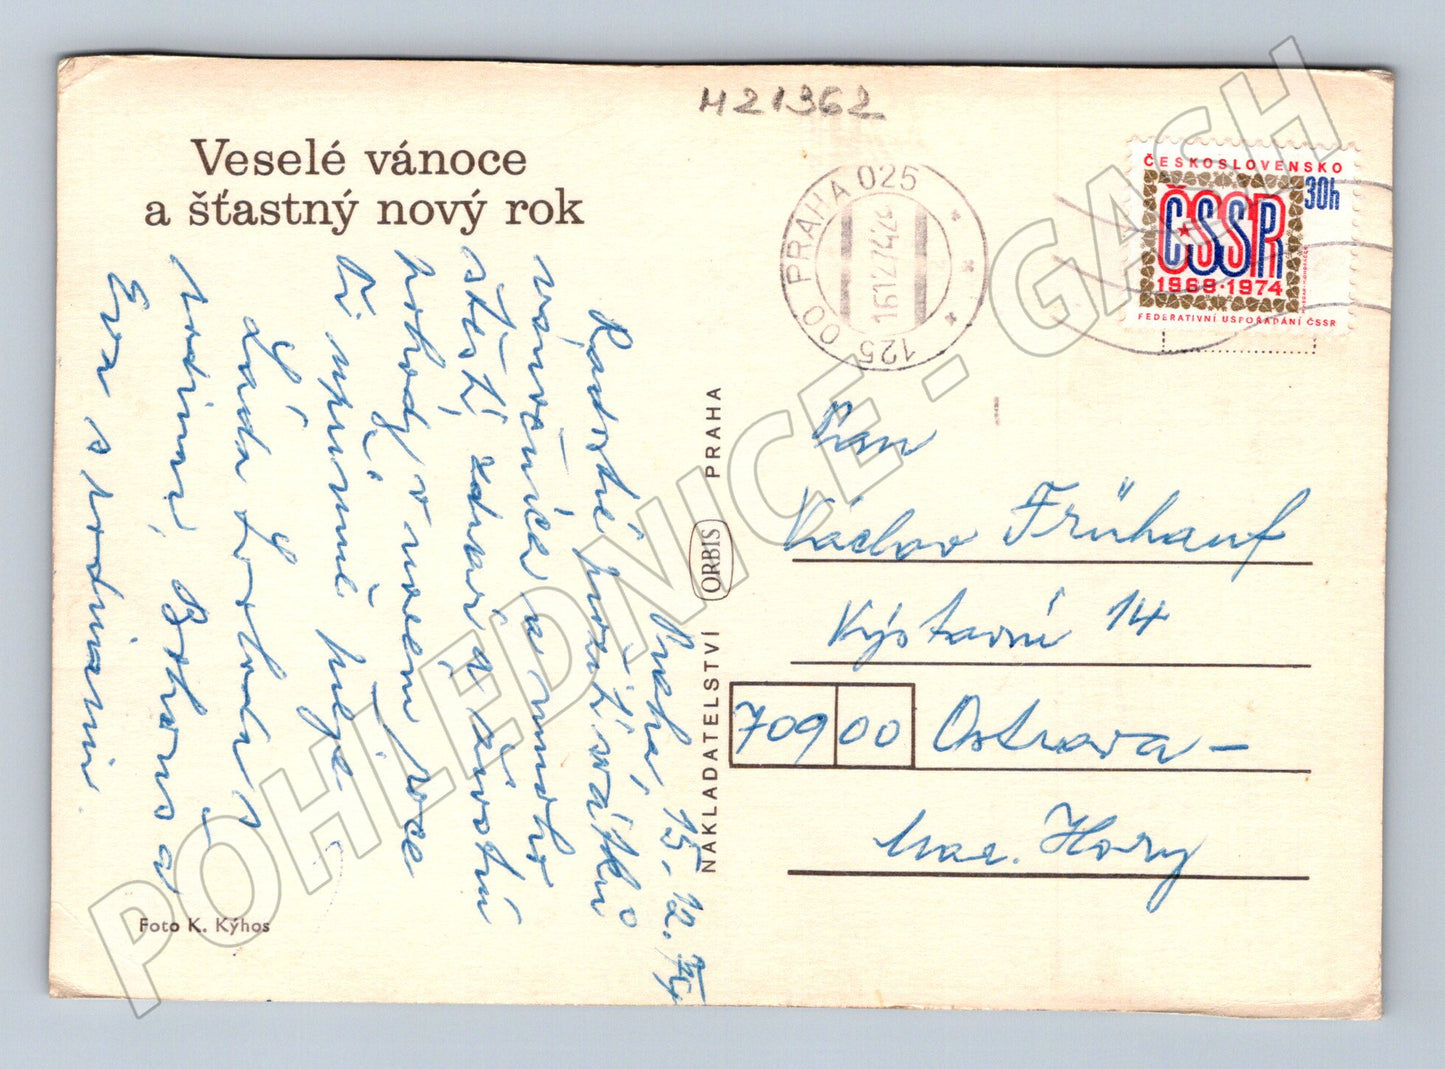 H21362
Veselé vánoce
a šťastný nový rok
PRAHA 025
125 00
16.12.74.24
ČESKOSLOVENSKO
30h
ČSSR
1969·1974
FEDERATIVNÍ USPOŘÁDÁNÍ ČSSR
Praha, 15. 12. 74
Radostné prožití svátků
vánočních a mnoho
štěstí, zdraví a životní
pohody v novém roce
Ti upřímně přeje
Láda
rodinou,
Eva s rodinami.
Foto K. Kýhos
NAKLADATELSTVÍ ORBIS PRAHA
Pan
Václav Frühauf
Výstavní 14
709 00 Ostrava –
Mar. Hory
POHLEDNICE - GACH